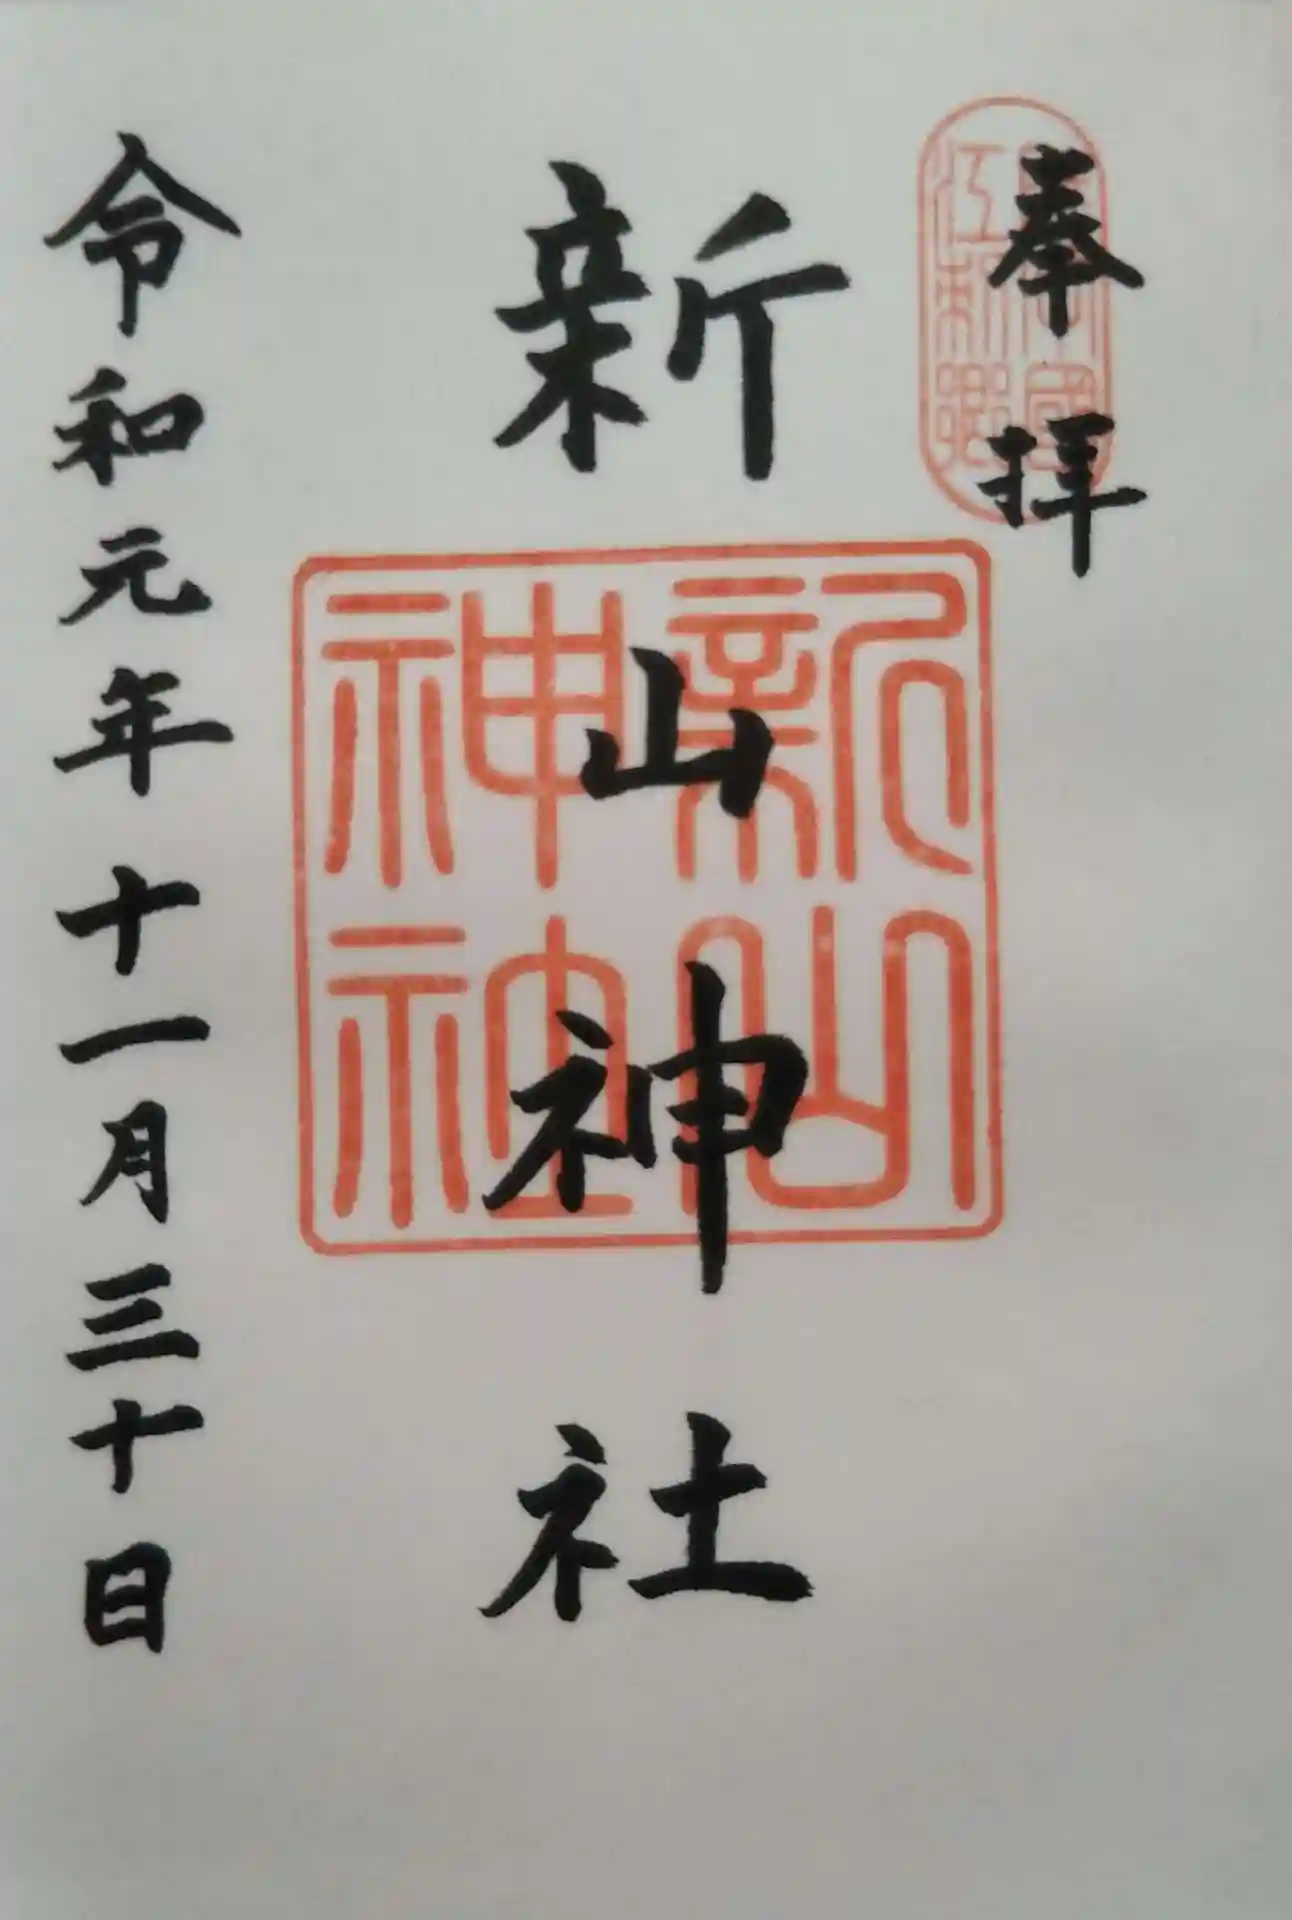 奉拝
新山神社
新山神社
令和元年十一月三十日